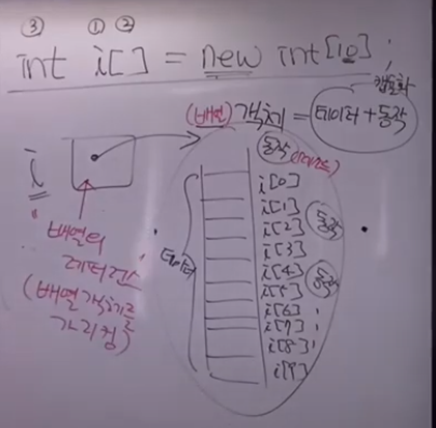 ③ ① ②
int i[] = new int[10];
캡슐화
(배열) 객체 = 데이터+동작
동작 (메서드)
i
배열의
레퍼런스
(배열 객체를
가리킴)
데이터
i[0]
i[1] 동작
i[2]
i[3]
i[4] 동작
i[5]
i[6]
i[7]
i[8]
i[9]